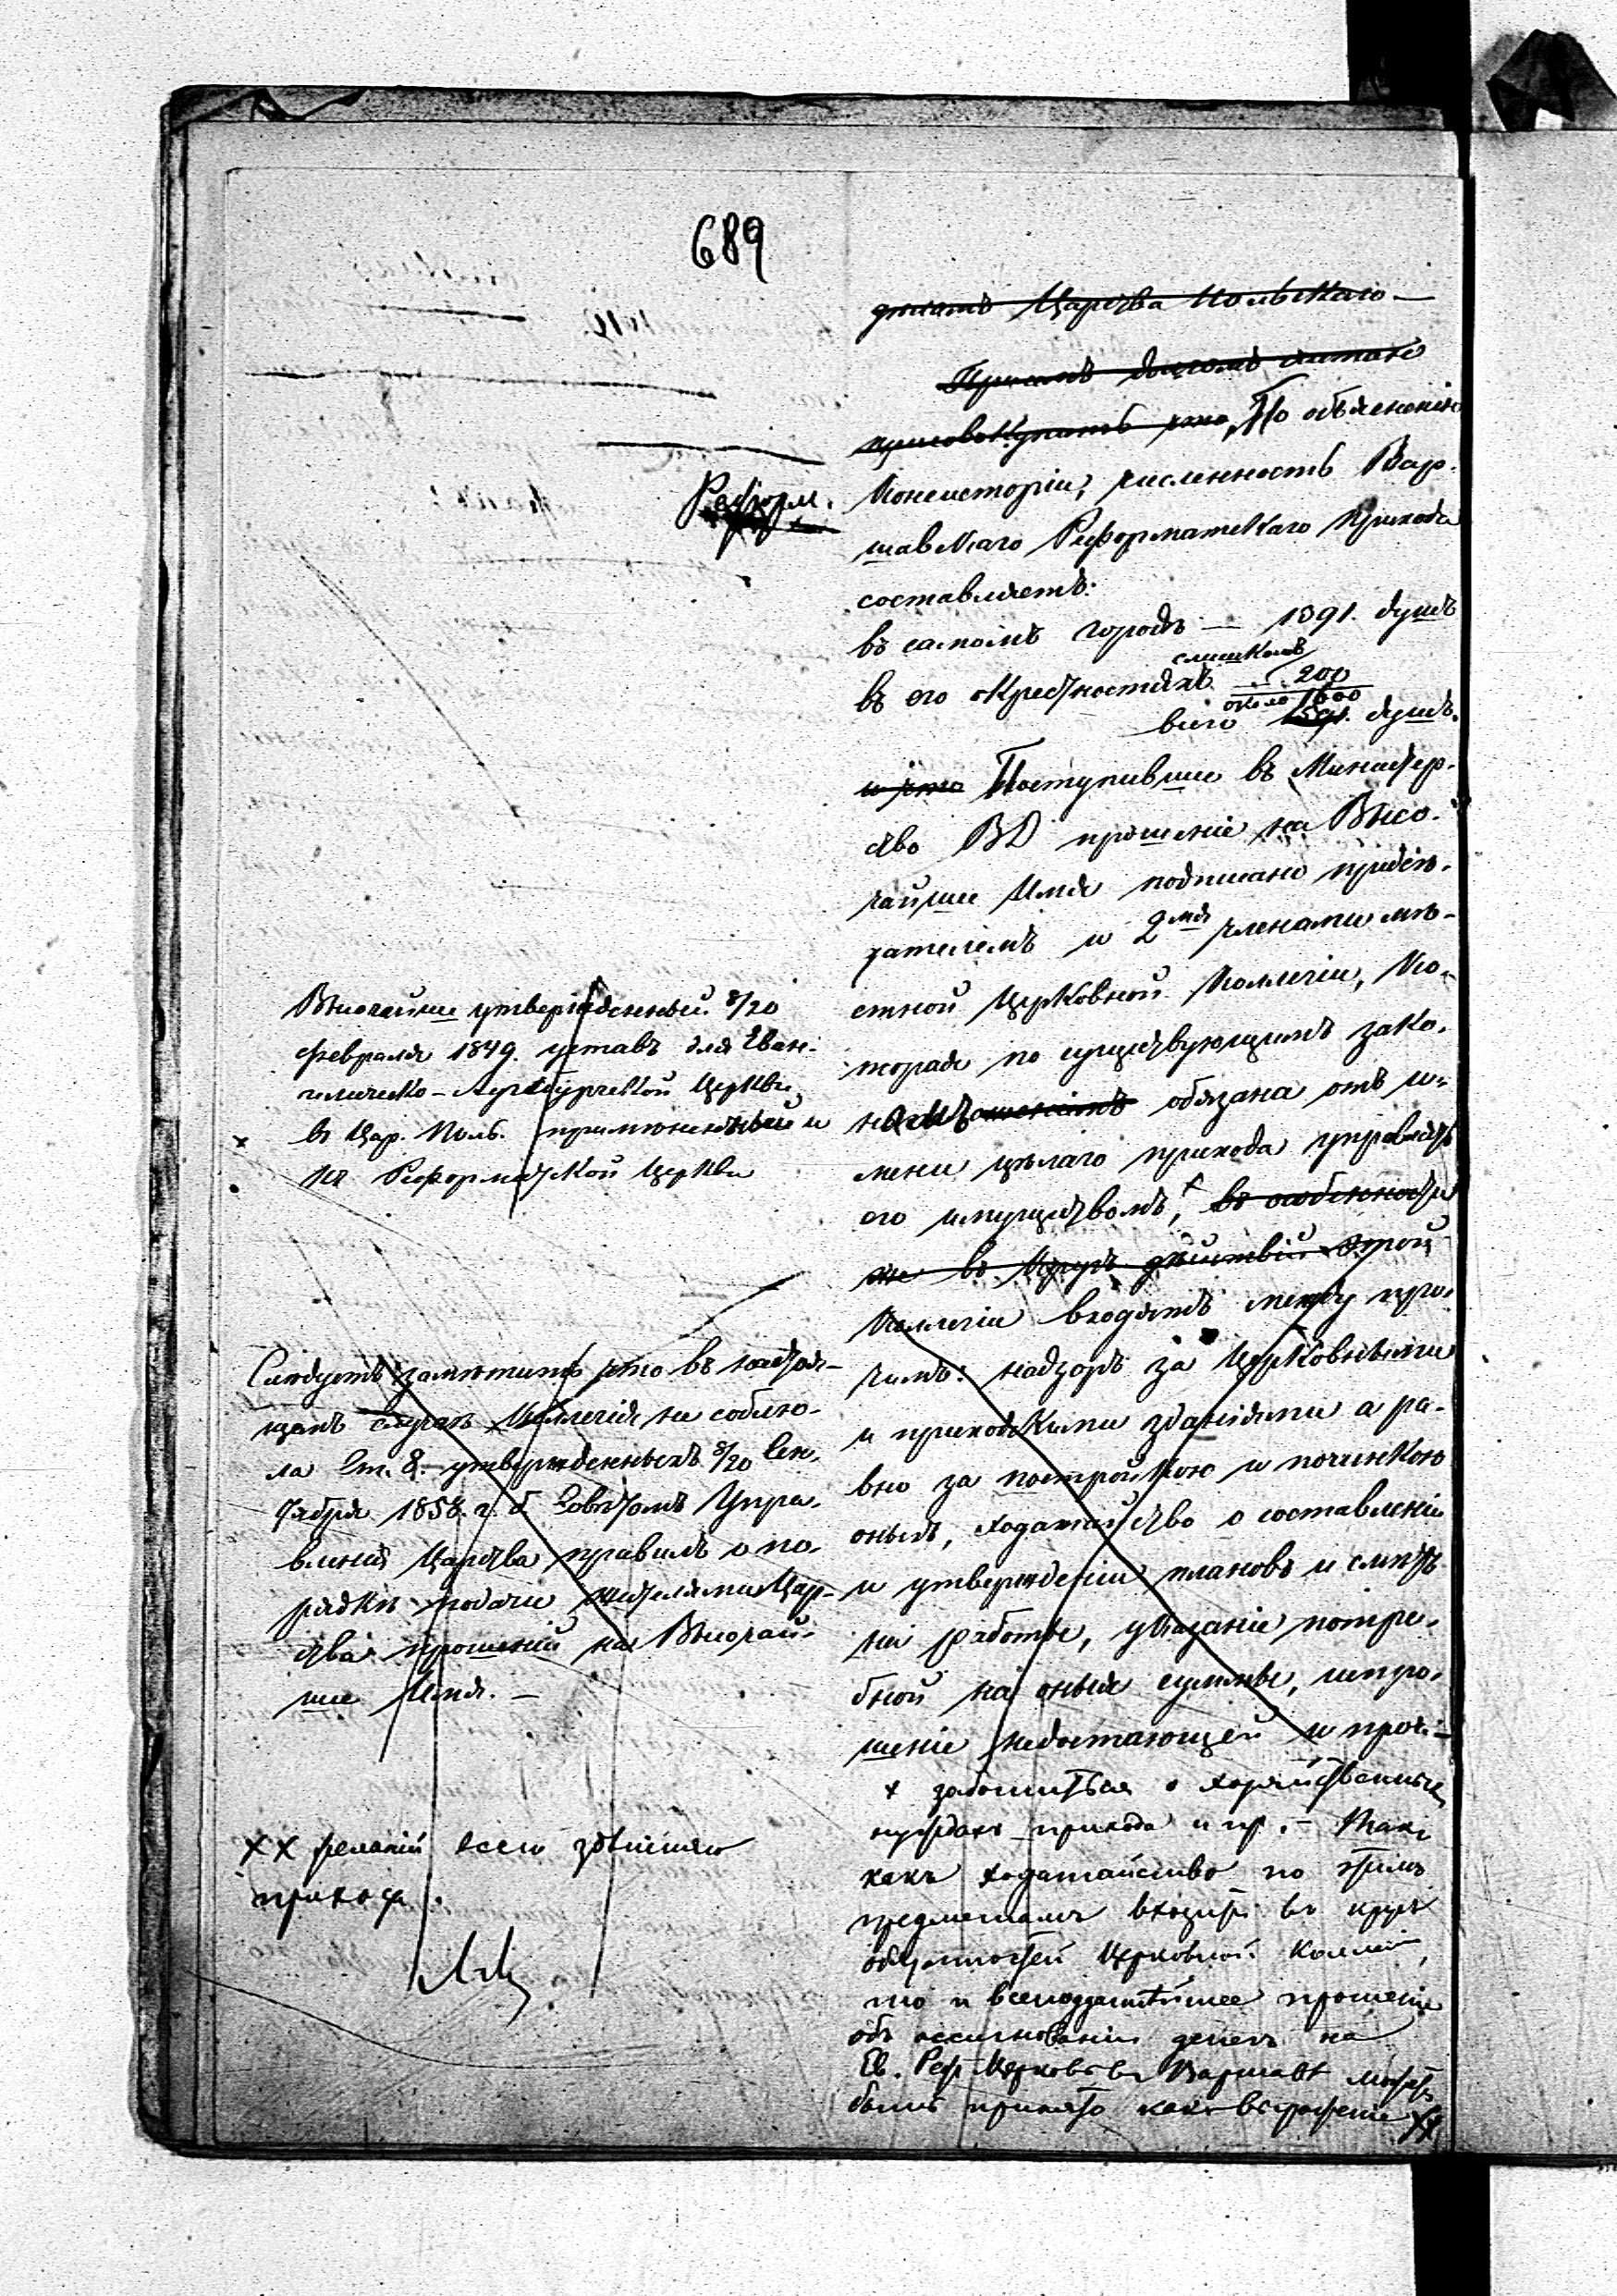 689
Царства Польскаго —
присовокупить что, По объясненію
Реформ.
Консисторіи, численность Вар-
шавскаго Реформатскаго Прихода
составляетъ:
въ самомъ городѣ — 1391. душъ
слишкомъ
въ его окрестностяхъ . . . 200
около 1600
всего 1591. душъ.
и что Поступившее въ Министер-
ство ВД прошеніе на Высо-
чайшее Имя подписано предсѣ-
дателемъ и 2мя членами мѣ-
стной Церковной Коллегіи, Ко-
торая по существующимъ зако-
намъ обязана отъ и-
мени цѣлаго прихода управлять
его имуществомъ, x въ особенности
же въ кругъ дѣйствій этой
Коллегіи входятъ между про-
чимъ: надзоръ за Церковными
и приходскими зданіями а ра-
вно за постройкою и починкою
оныхъ, ходатайство о составленіи
и утвержденіи плановъ и смѣтъ
на работы, указаніе потре-
бной на оныя суммы, испро-
шеніе недостающей и проч. —
x заботиться о хозяйственныхъ
нуждахъ прихода и пр. — Такъ
какъ ходатайство по этимъ
предметамъ входитъ въ кругъ
обязанностей Церковной Коллегіи,
то и всеподданнѣйшее прошеніе
объ ассигнованіи денегъ на
Ев. Реф. Церковь въ Варшавѣ можетъ
быть принято какъ выраженіе xx
Высочайше утвержденный 8/20
февраля 1849. уставъ для Еван-
гелическо-Аугсбургской Церкви
x въ Цар. Поль. примѣненный и
къ Реформатской Церкви
Слѣдуетъ замѣтить что въ настоя-
щемъ случаѣ Коллегія не соблю-
ла Ст. 8. утвержденныхъ 8/20 Сен-
тября 1858. г. Совѣтомъ Упра-
вленія Царства правилъ о по-
рядкѣ подачи жителями Цар-
ства прошеній на Высочай-
шее Имя. —
xx желаній всего здѣшняго
прихода.